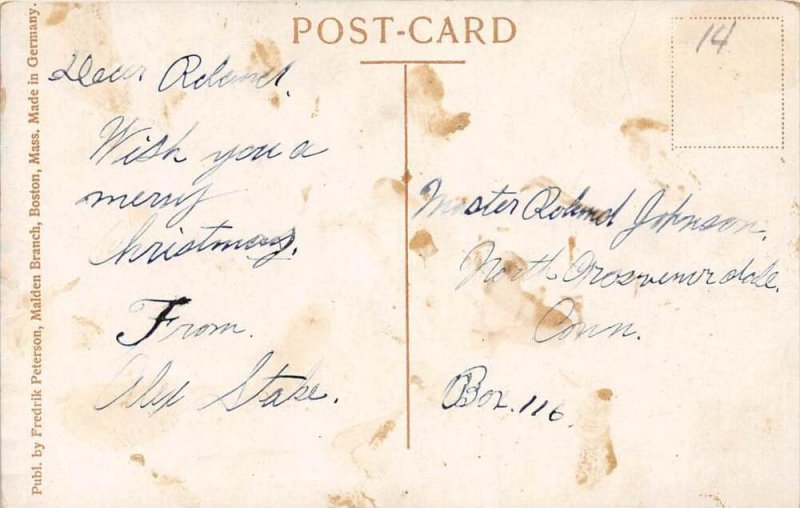 POST-CARD
14
Publ. by Fredrik Peterson, Malden Branch, Boston, Mass. Made in Germany.
Dear Roland.
Wish you a
merry
Christmas.
From.
Alex Stake.
Master Roland Johnson.
North Grosvenordale.
Conn.
Box. 116